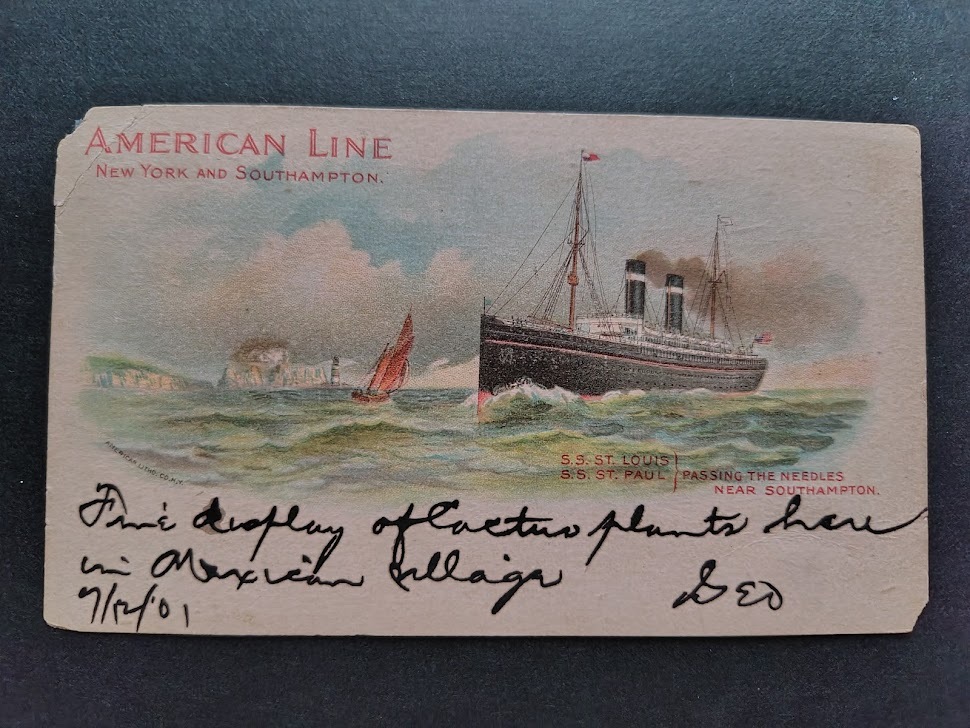 AMERICAN LINE
NEW YORK AND SOUTHAMPTON.
AMERICAN LITHO. CO. N.Y.
S.S. ST. LOUIS
S.S. ST. PAUL } PASSING THE NEEDLES
NEAR SOUTHAMPTON.
Fine display of Cactus plants here
in Mexican Village
Geo
9/12/01